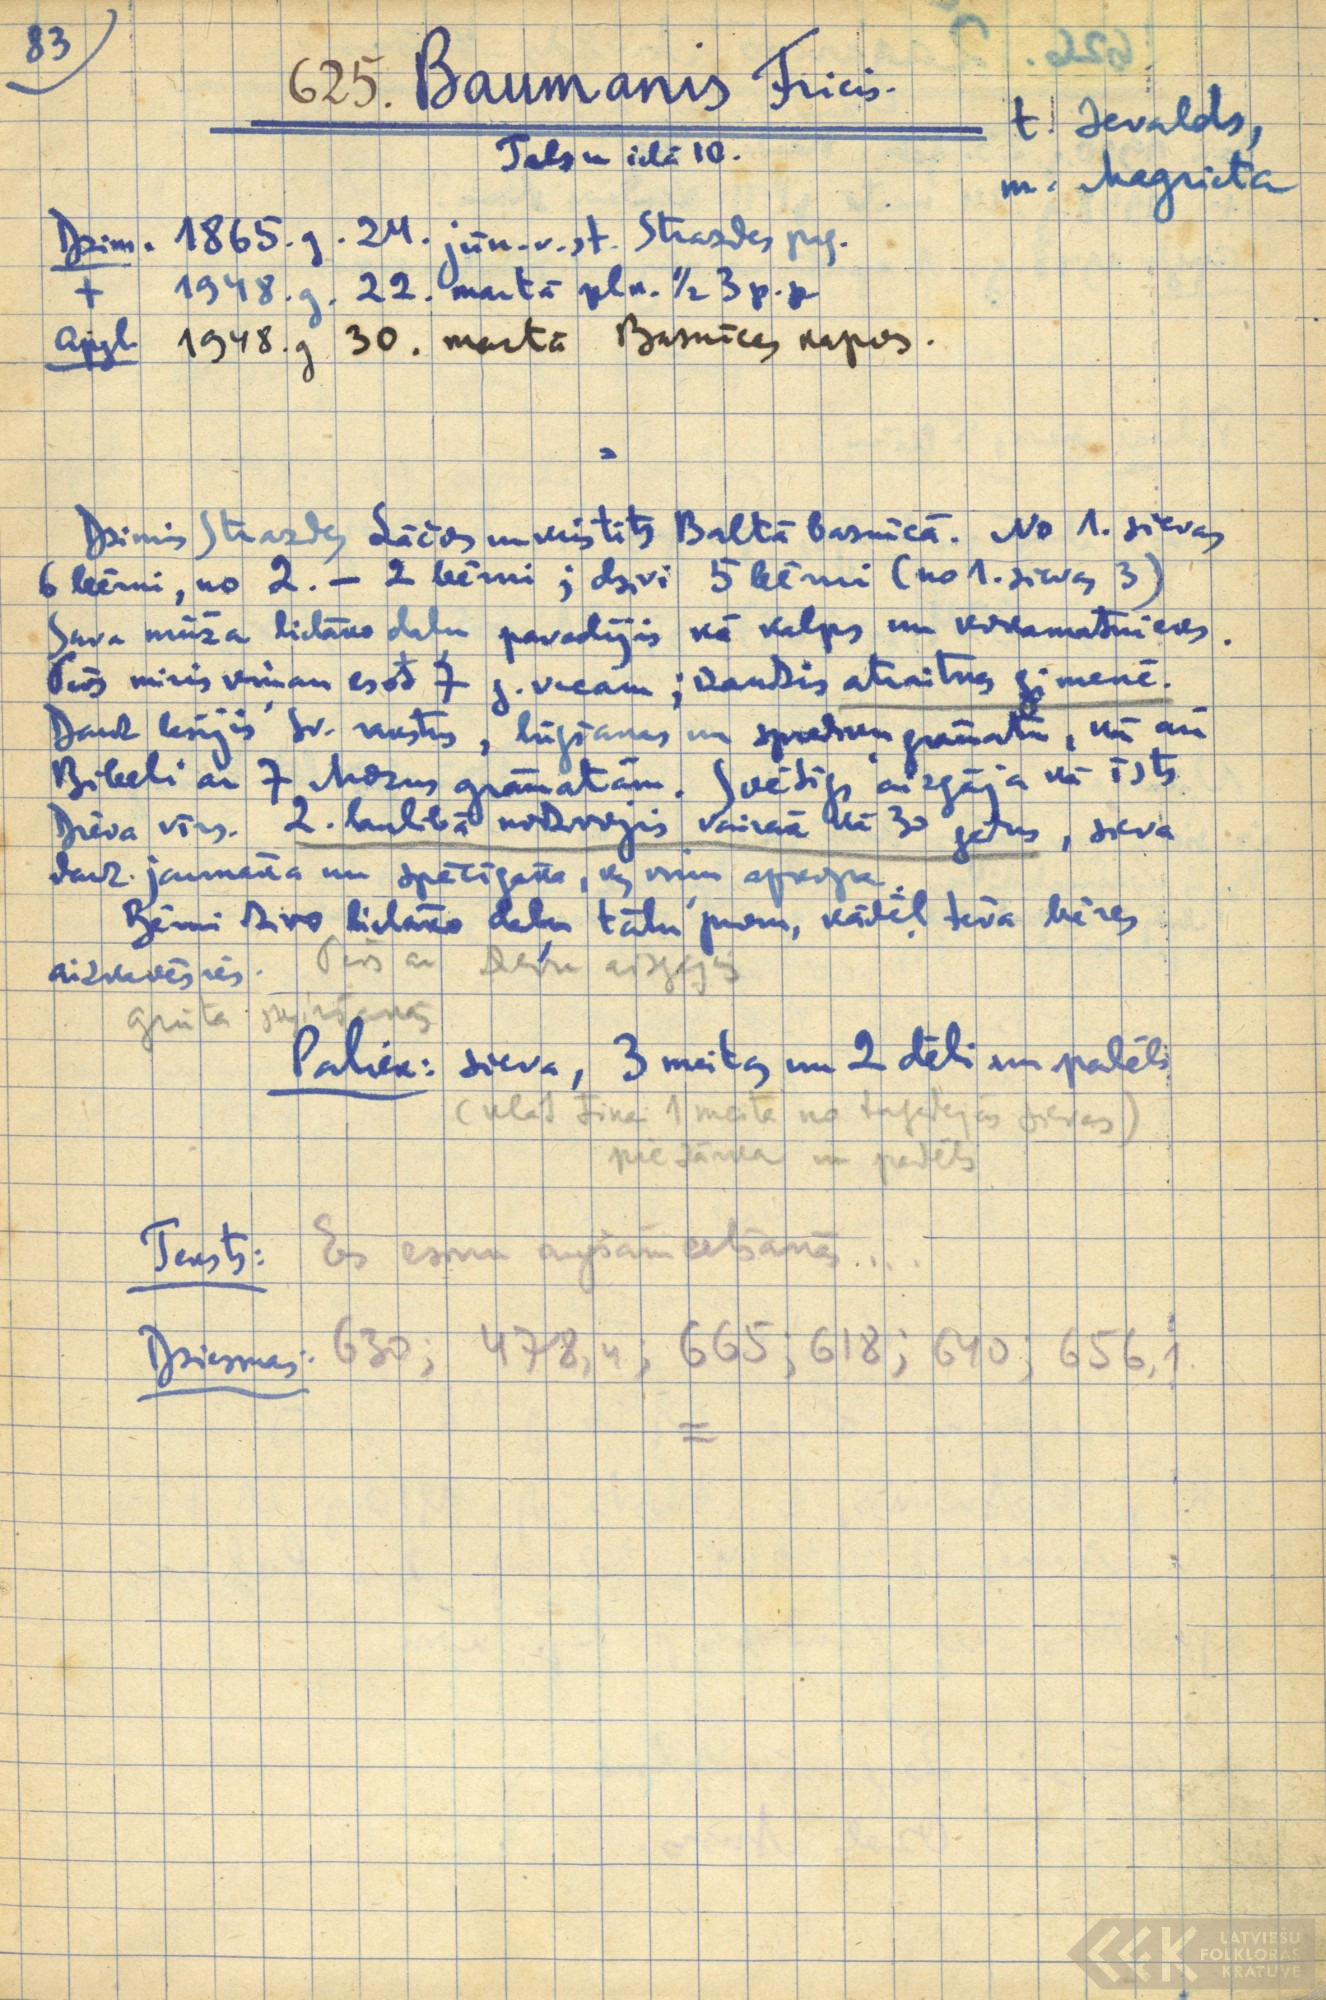 83
625. Baumanis Fricis.
t. Jevalds,
Talsu ielā 10.
m. Magrieta
Dzim. 1865.g. 24. jūn. v. st. Strazdes pag.
+ 1948.g. 22. martā plx. ½ 3 p.p.
Apgl. 1948.g 30. martā Baznīcas kapos.
Dzimis Strazdes Lāčos un kristīts Baltā baznīcā. No 1. sievas
6 bērni, no 2. – 2 bērni; dzīvi 5 bērni (no 1. sievas 3)
Sava mūža lielāko daļu pavadījis kā kalps un kokamatnieks.
Tēvs miris viņam esot 7 g. vecam; audzis atraitnes ģimenē.
Daudz lasījis Sv. rakstus, lūgšanas un sprediķu grāmatu, kā arī
Bībeli ar 7 Mozus grāmatām. Svētīgs aizgāja kā īsts
Dieva vīrs. 2. laulībā nodzīvojis vairāk kā 30 gadus, sieva
daudz jaunāka un spēcīgāka, kas viņu apkopa.
Bērni dzīvo lielāko daļu tālu prom, kādēļ tēva bēres
aizkavēsies. Tēvs ar Dievu aizgājis
grūta šķiršanās
Paliek: sieva, 3 meitas un 2 dēli un padēls
(klāt tikai 1 meita no tagadējās sievas)
un padēls
Teksts: Es esmu augšāmcelšanās ....
Dziesmas: 630; 478,4; 665; 618; 640; 656,1.
=
LATVIEŠU
FOLKLORAS
KRĀTUVE